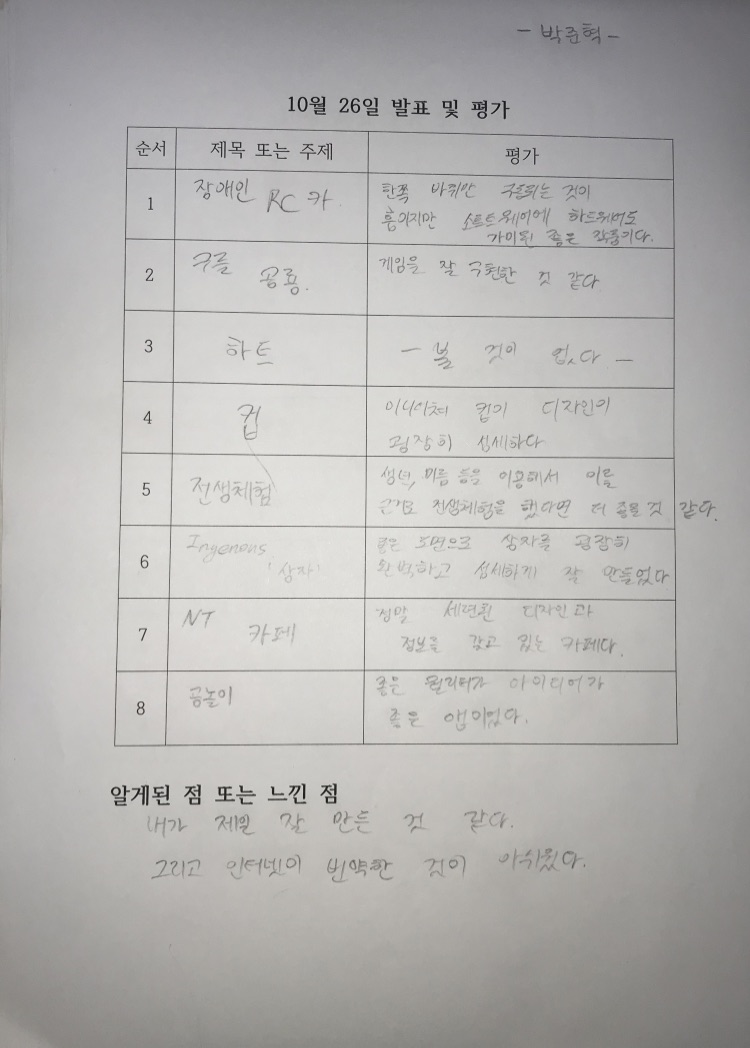 - 박준혁 -
10월 26일 발표 및 평가
순서 제목 또는 주제 평가
1 장애인 RC 카 한쪽 바퀴만 구동되는 것이
흠이지만 소프트웨어에 하드웨어도
가미된 좋은 작품이다.
2 구글 공룡. 게임을 잘 구현한 것 같다
3 하트 - 볼 것이 없다 -
4 컵 미니어쳐 컵이 디자인이
굉장히 섬세하다
5 전생체험 생년, 이름 등을 이용해서 이를
근거로 전생체험을 했다면 더 좋을 것 같다.
6 Ingenous (상자) 상자를 굉장히
완벽하고 섬세하게 잘 만들었다
7 NT 카페 정말 세련된 디자인과
정보를 갖고 있는 카페다.
8 공놀이 좋은 퀄리티가 아이디어가
좋은 앱이었다.
알게된 점 또는 느낀 점
내가 제일 잘 만든 것 같다.
그리고 인터넷이 빈약한 것이 아쉬웠다.